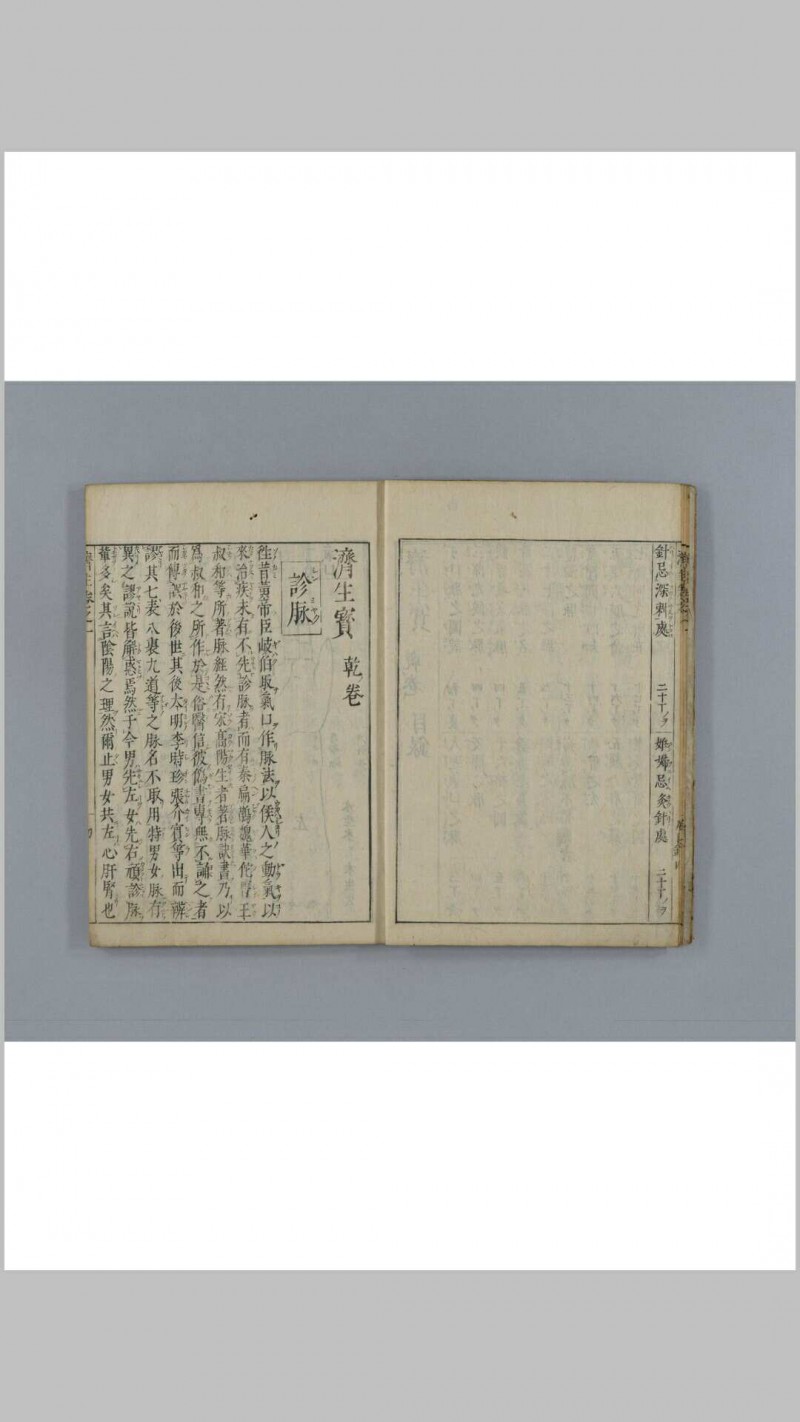 針忌深刺處 二十丁ノヲ
姙婦忌灸針處 二十丁ノヲ
濟生寳 乾卷
診脉
徃昔黄帝臣岐伯取氣口作脉法以候人之動氣以
來治疾未有不先診脉者而有秦扁鵲魏華佗晋王
叔和等所著脉經然有宋高陽生者著脉訣書乃以
爲叔和之所作於是俗醫信彼僞書専無不誦之者
而傳誤於後世其後太明李時珍張介賓等出而辨
謬其七表八裏九道等之脉名不取用特男女脉有
異之謬説皆解惑焉然于今男先左女先右頑診脉
輩多矣其言陰陽之理然爾止男女共左心肝腎也